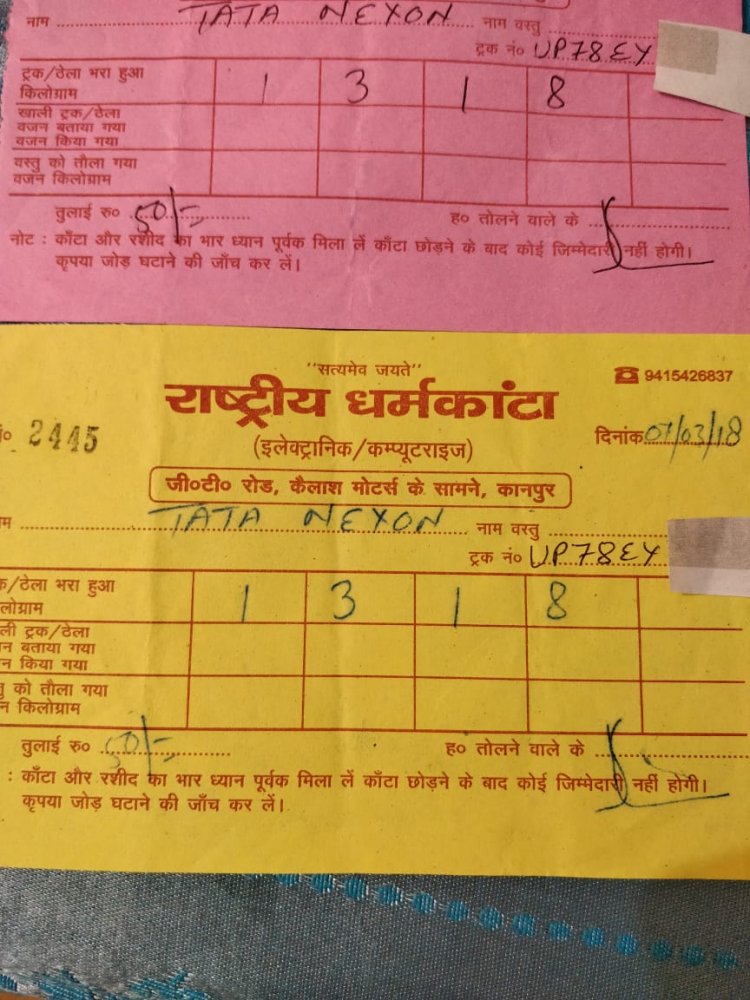 नाम TATA NEXON नाम वस्तु
ट्रक नं० UP78EY
ट्रक/ठेला भरा हुआ
किलोग्राम 1 3 1 8
खाली ट्रक/ठेला
वजन बताया गया
वजन किया गया
वस्तु को तौला गया
वजन किलोग्राम
तुलाई रु० 50/= ह० तोलने वाले के
नोट : काँटा और रशीद का भार ध्यान पूर्वक मिला लें काँटा छोड़ने के बाद कोई जिम्मेदारी नहीं होगी।
कृपया जोड़ घटाने की जाँच कर लें।
"सत्यमेव जयते" 9415426837
राष्ट्रीय धर्मकांटा
2445 (इलेक्ट्रानिक/कम्प्यूटराइज) दिनांक 07/03/18
जी०टी० रोड, कैलाश मोटर्स के सामने, कानपुर
TATA NEXON नाम वस्तु
ट्रक नं० UP78EY
/ठेला भरा हुआ
लोग्राम 1 3 1 8
ली ट्रक/ठेला
न बताया गया
न किया गया
को तौला गया
न किलोग्राम
तुलाई रु० 50/= ह० तोलने वाले के
: काँटा और रशीद का भार ध्यान पूर्वक मिला लें काँटा छोड़ने के बाद कोई जिम्मेदारी नहीं होगी।
कृपया जोड़ घटाने की जाँच कर लें।